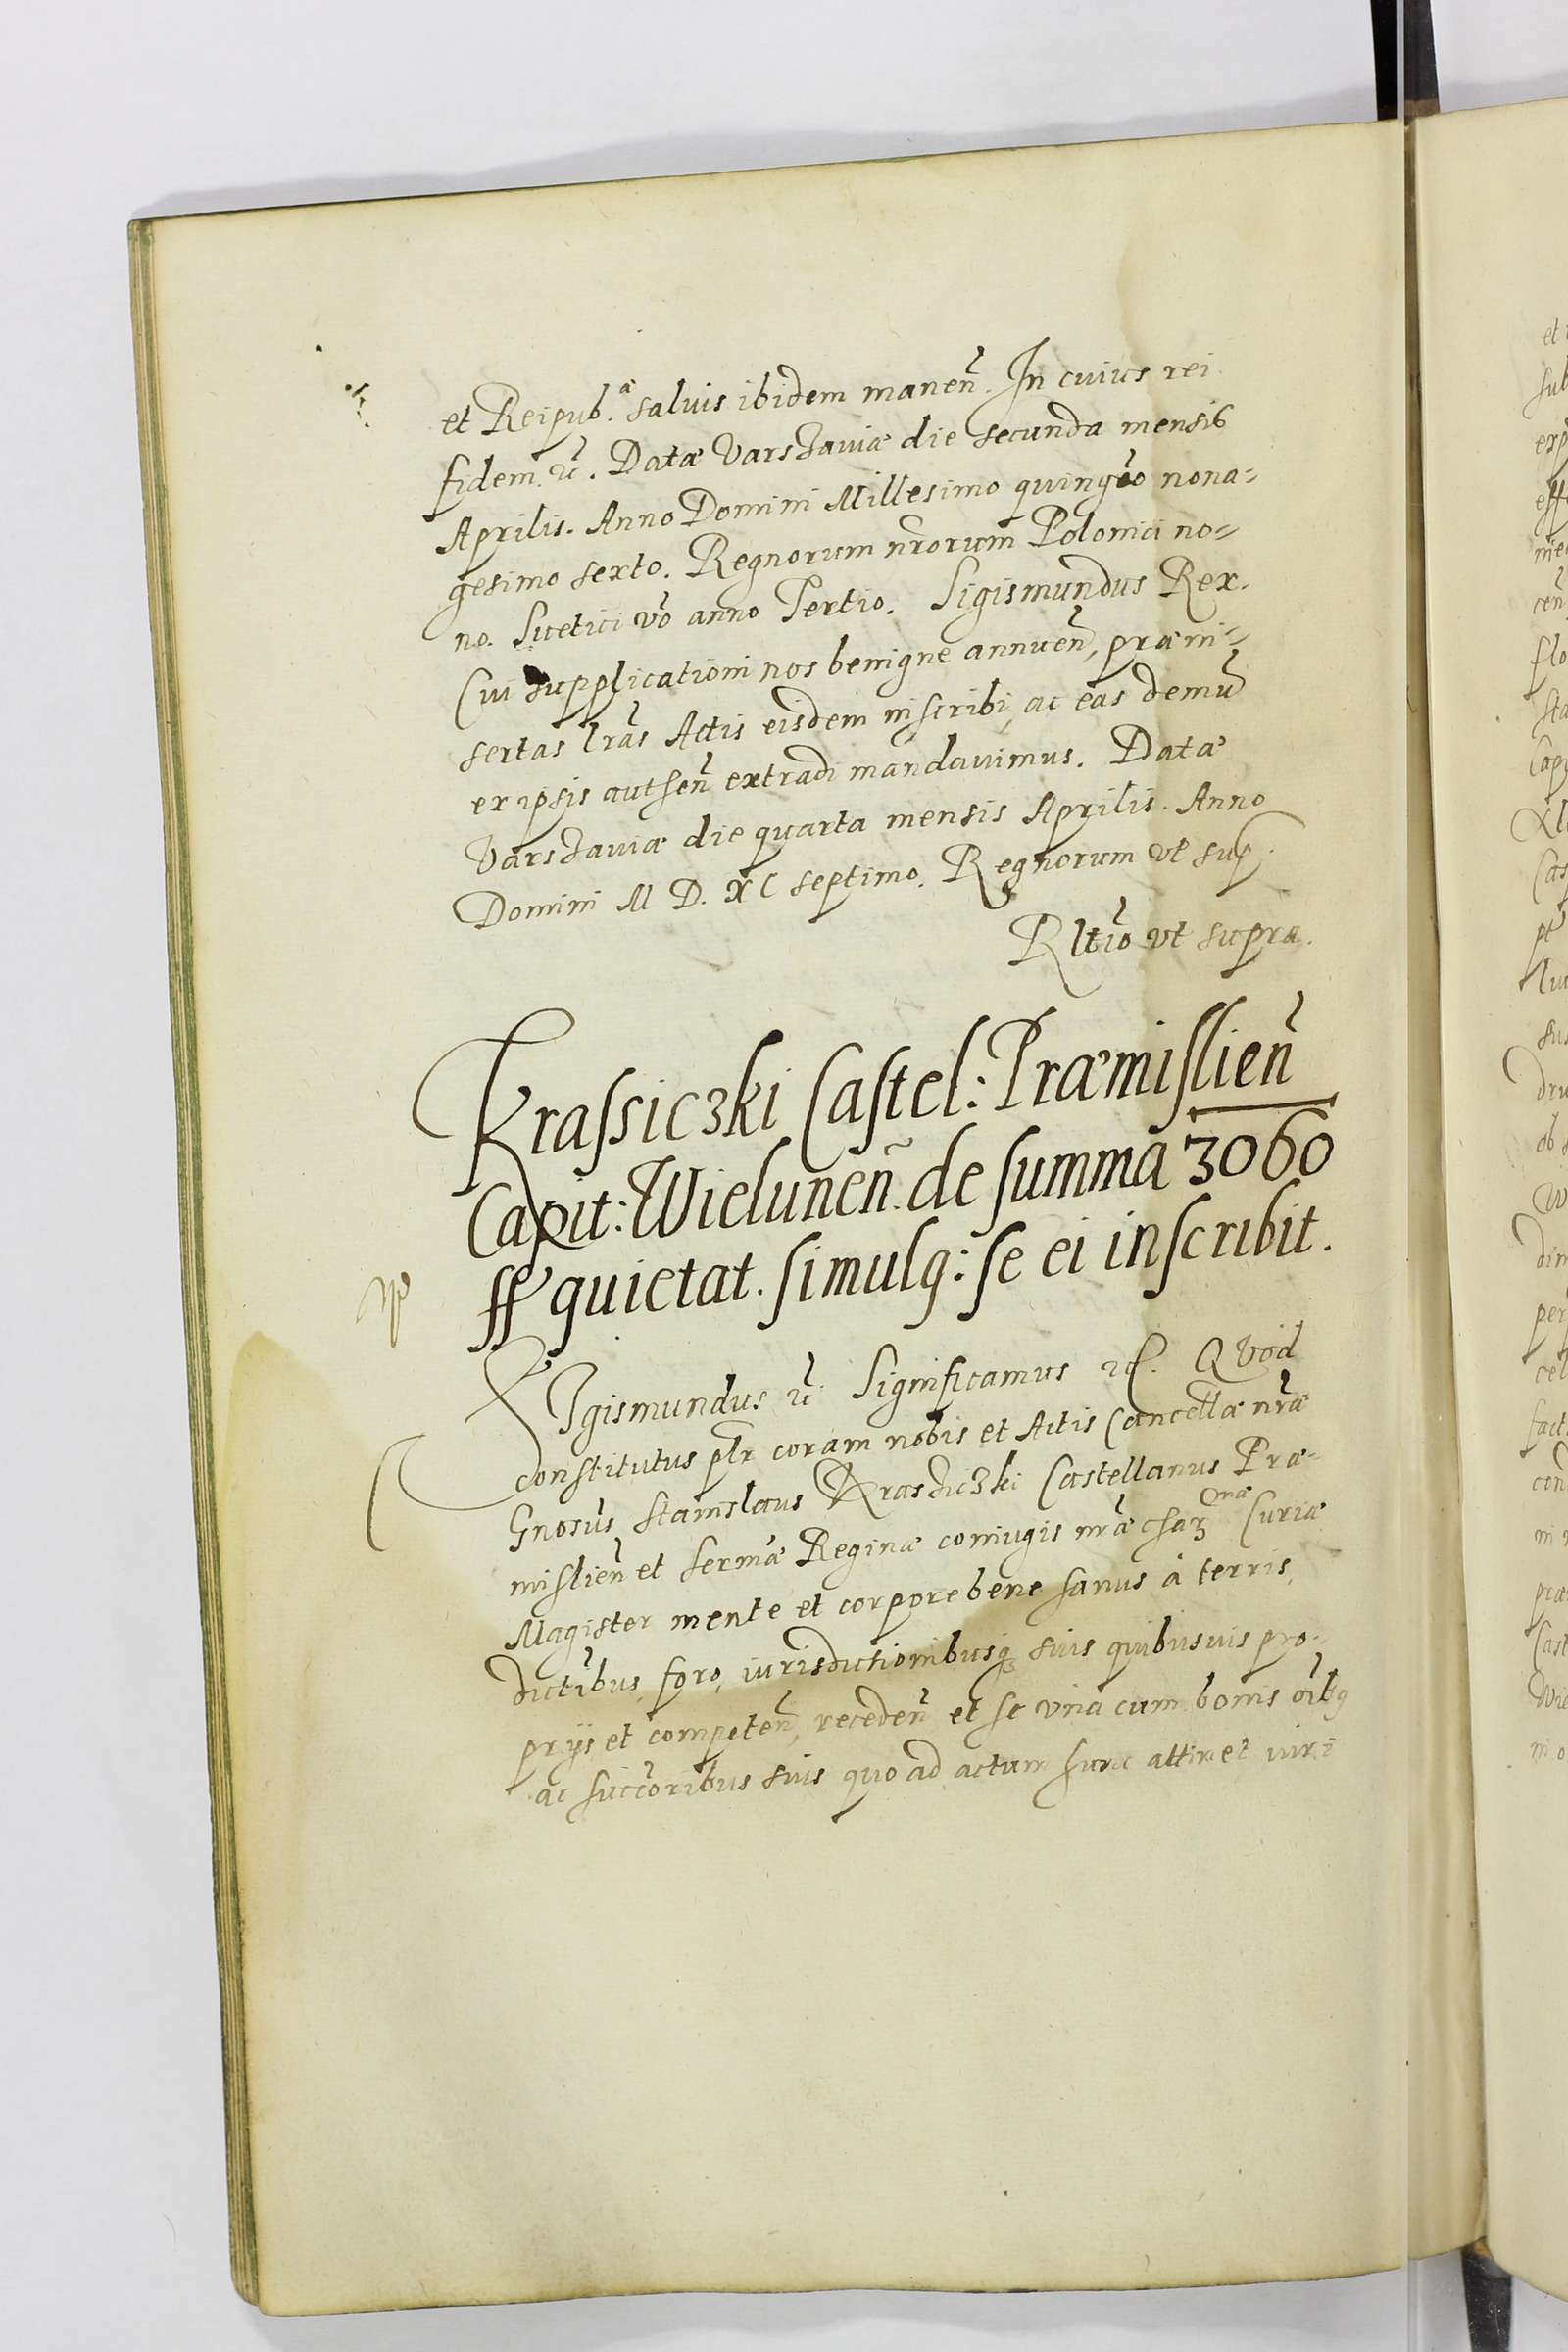 et Reipub.ᵃ salvis ibidem manen̄. In cuius rei
fidem ꝛc̄. Datæ Varschaviæ die secunda mensis
Aprilis. Anno Domini Millesimo quing̃o nona-
gesimo sexto. Regnorum nr̄orum Polonici no-
no. Suetici vō anno Tertio. Sigismundus Rex.
Cui supplicationi nos benigne annuen̄, præin-
sertas lr̄as Actis eisdem inscribi, ac eas demū
ex ipsis authen̄ extradi mandavimus. Datæ
Varschaviæ die quarta mensis Aprilis. Anno
Domini M D. XC septimo. Regnorum vt sup.
Rltio vt supra.
Krassiczki Castel: Præmislien̄
Capit: Wielunen̄. de summa 3060
ff quietat. simulq: se ei inscribit.
SIgismundus ꝛc̄. Significamus ꝛc. QVod
constitutus plr̄ coram nobis et Actis Cancellæ nr̄æ
Gnosus Stanislaus Krasziczki Castellanus Præ-
mislien̄ et Serm̄æ Reginæ coniugis nr̄æ chaꝛ ᵐᵃᵉ Curiæ
Magister mente et corpore bene sanus à terris,
dictibus, foro, iurisdictionibusq suis quibusuis pro-
prijs et competen̄, receden̄ et se vna cum bonis oībq
ac succoribus suis quo ad actum hunc attinet iuri